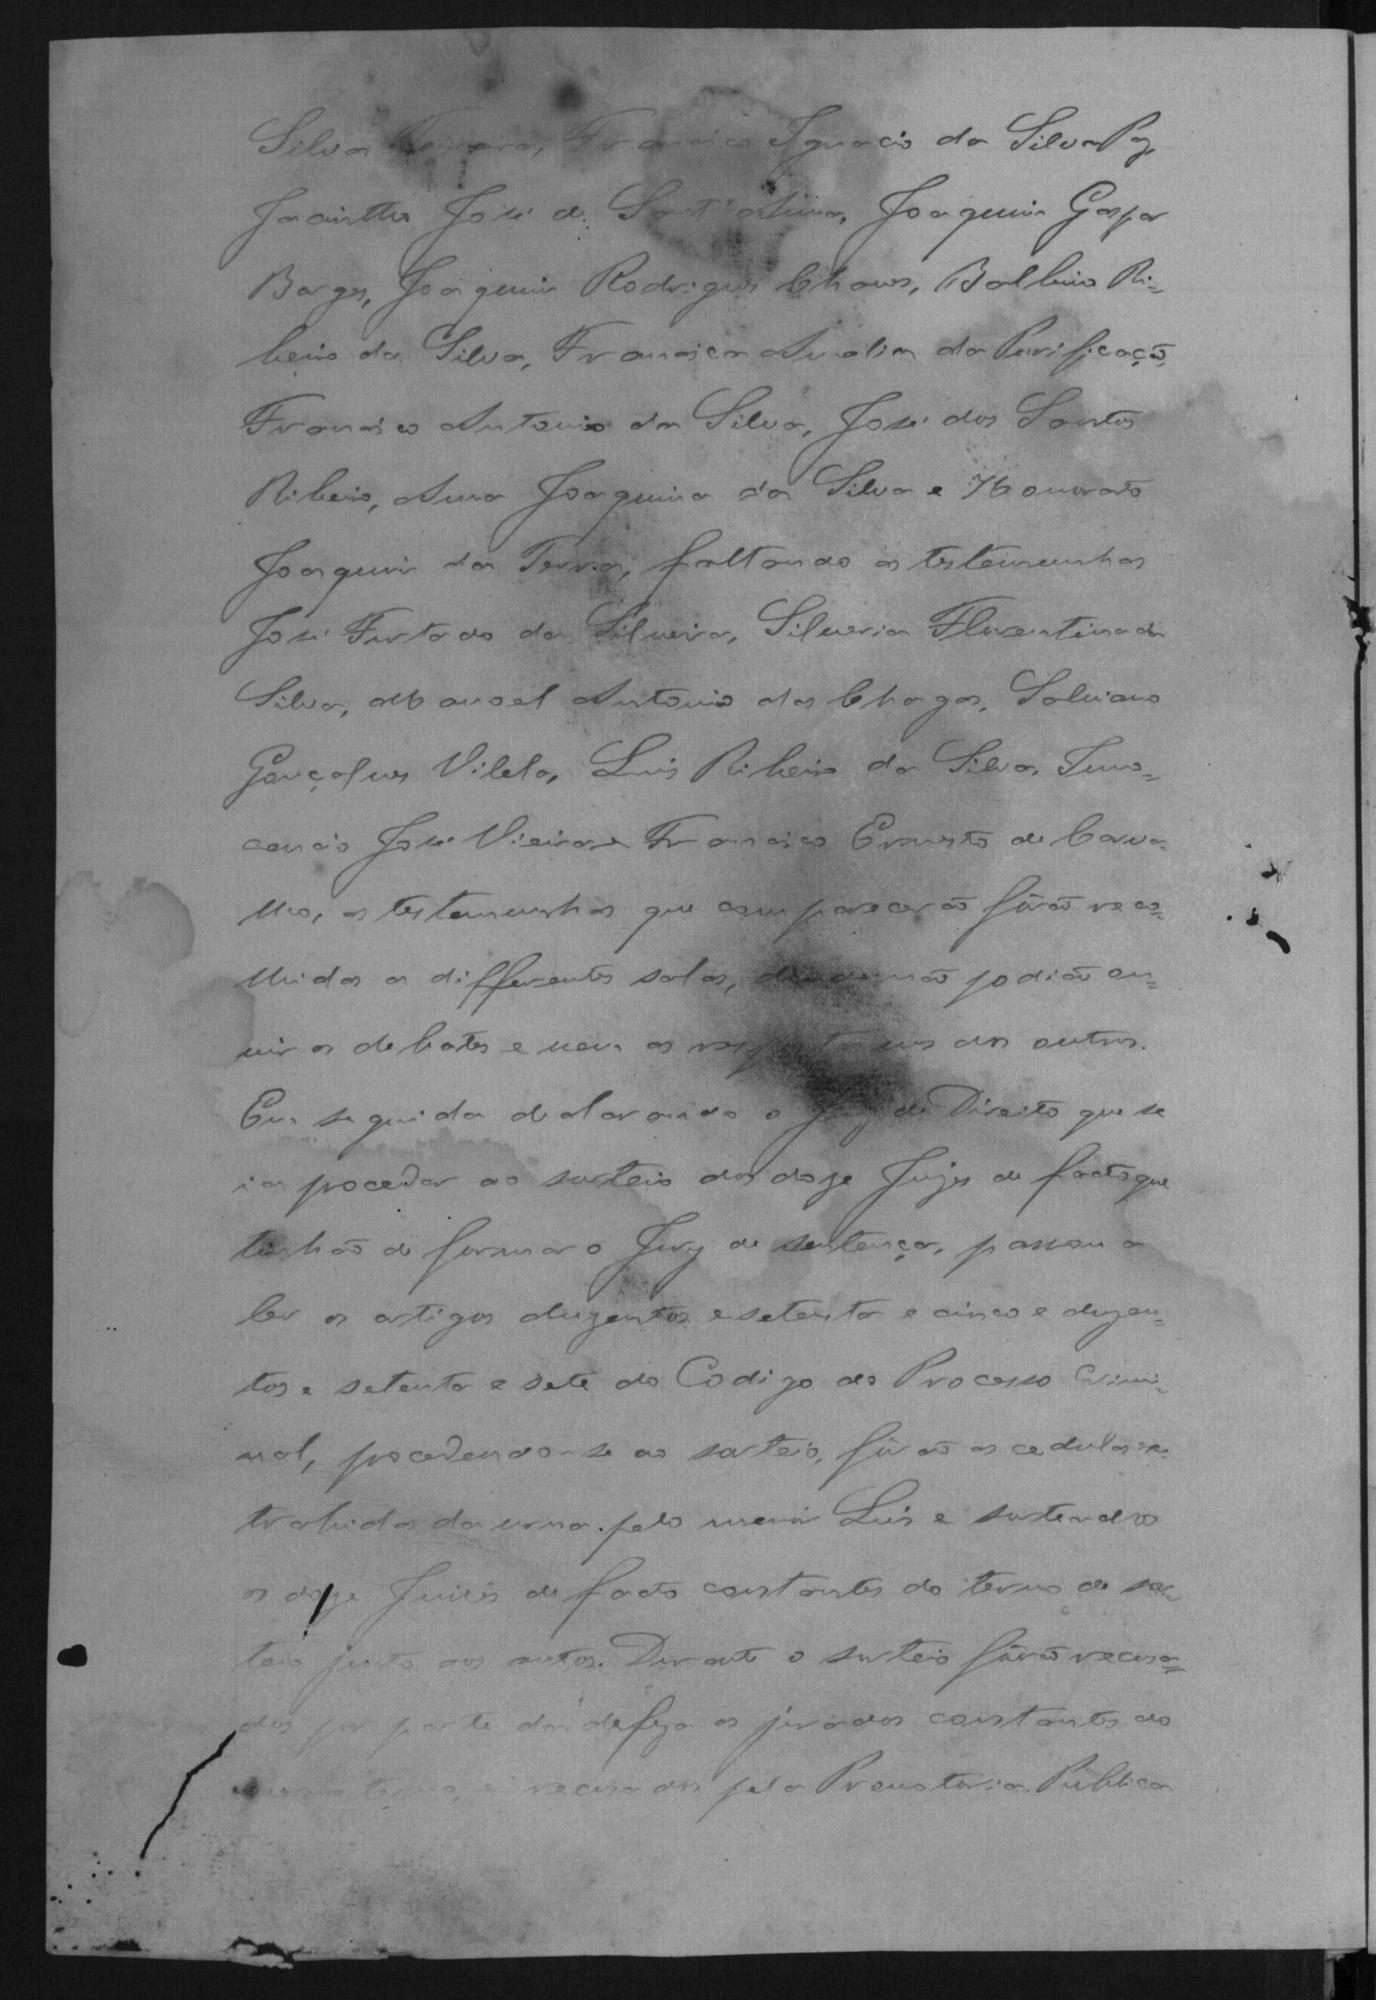 Silva Ferreira, Francisco Ignacio da Silva Paz,
Jacintho José de Sant'Anna, Joaquim Gaspar
Borges, Joaquim Rodrigues Chaves, Balbino Ri-
beiro da Silva, Francisca Amalia da Purificação,
Francisco Antonio da Silva, José dos Santos
Ribeiro, Anna Joaquina da Silva e Honorato
Joaquim da Terra, faltando as testemunhas
José Furtado da Silveira, Silveria Florentina da
Silva, Manoel Antonio das Chagas, Salviano
Gonçalves Vilela, Luis Ribeiro da Silva, Inno-
cencio José Vieira e Francisco Ernesto de Carva-
lho, as testemunhas que comparecerão fôrão reco-
lhidas a differentes salas, donde não podião ou-
vir os debates e nem as respostas uns dos outros.
Em seguida declarando o Juiz de Direito que se
ia proceder ao sorteio dos doze Juizes de facto que
tinhão de formar o Jury de sentença, passou a
ler os artigos duzentos e setenta e cinco e duzen-
tos e setenta e sete do Codigo do Processo Crimi-
nal, procedendo-se ao sorteio, fôrão as cedulas ex-
trahidas da urna pelo menór Luis e sorteados
os doze Juizes de facto constantes do termo de sor-
teio junto aos autos. Durante o sorteio fôrão recusa-
dos por parte da defeza os jurados constantes do
mesmo termo, e recusados pela Promotoria Publica